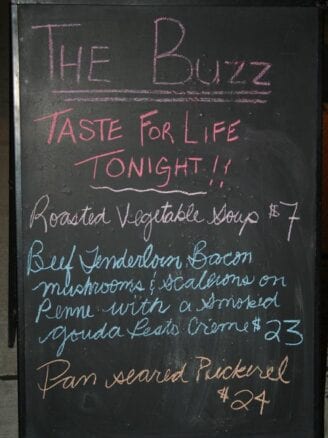 THE BUZZ
TASTE FOR LIFE
TONIGHT!!
Roasted Vegetable Soup $7
Beef Tenderloin, Bacon
mushrooms & scallions on
Penne with a smoked
gouda Pesto Creme $23
Pan seared Pickerel
$24